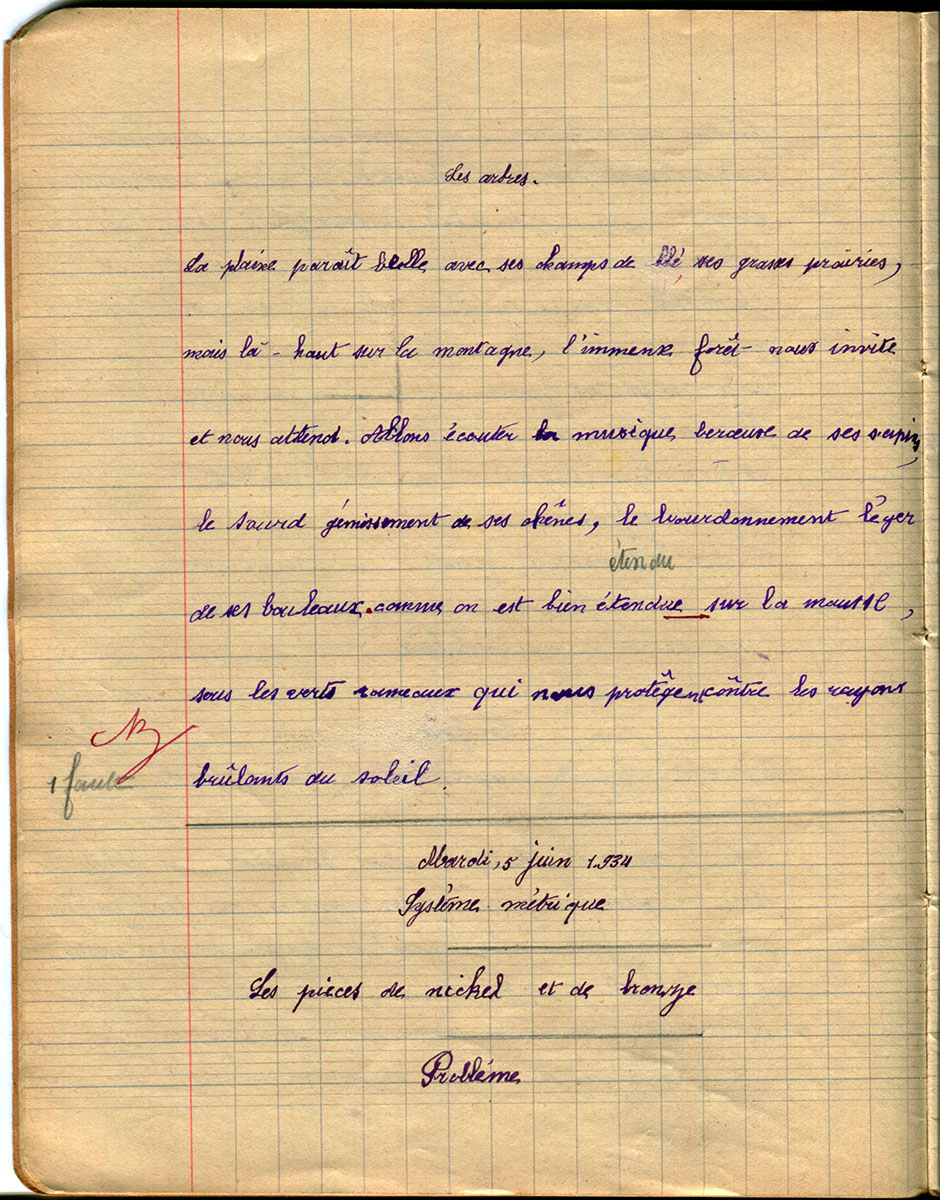 Les arbres.
La plaine paraît belle avec ses champs de blé, ses grasses prairies,
mais là-haut sur la montagne, l'immense forêt nous invite
et nous attend. Allons écouter la musique berceuse de ses sapins,
le sourd gémissement de ses chênes, le bourdonnement léger
étendu
de ses bouleaux. comme on est bien étendue sur la mousse,
sous les verts rameaux qui nous protêgent contre les rayons
brûlants du soleil.
1 faute
Mardi, 5 juin 1934
Système métrique
Les pièces de nickel et de bronze
Problème